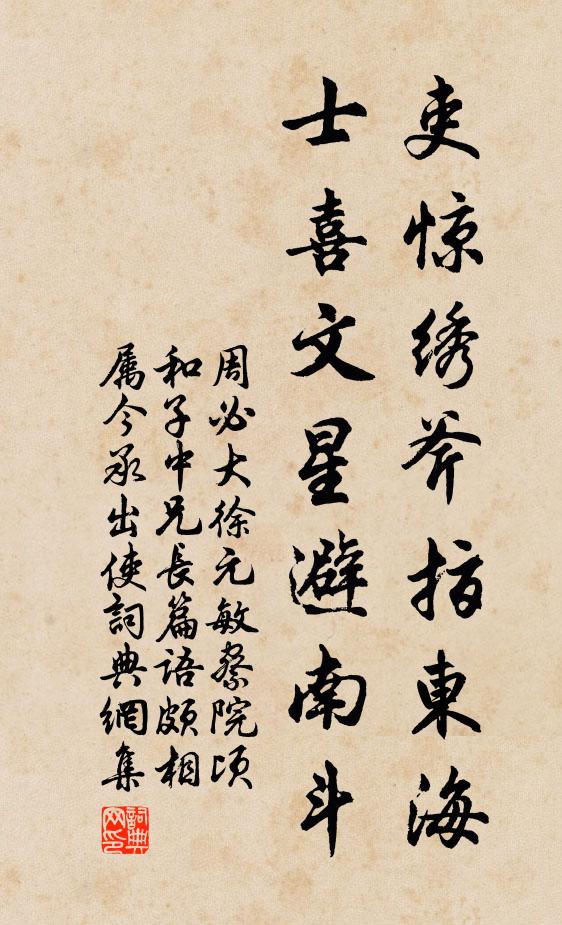 吏惊绣斧指東海
士喜文星避南斗
周必大徐元敏察院頃
和子中兄長篇語頗相
属今承出使詞典網集
詞典网印